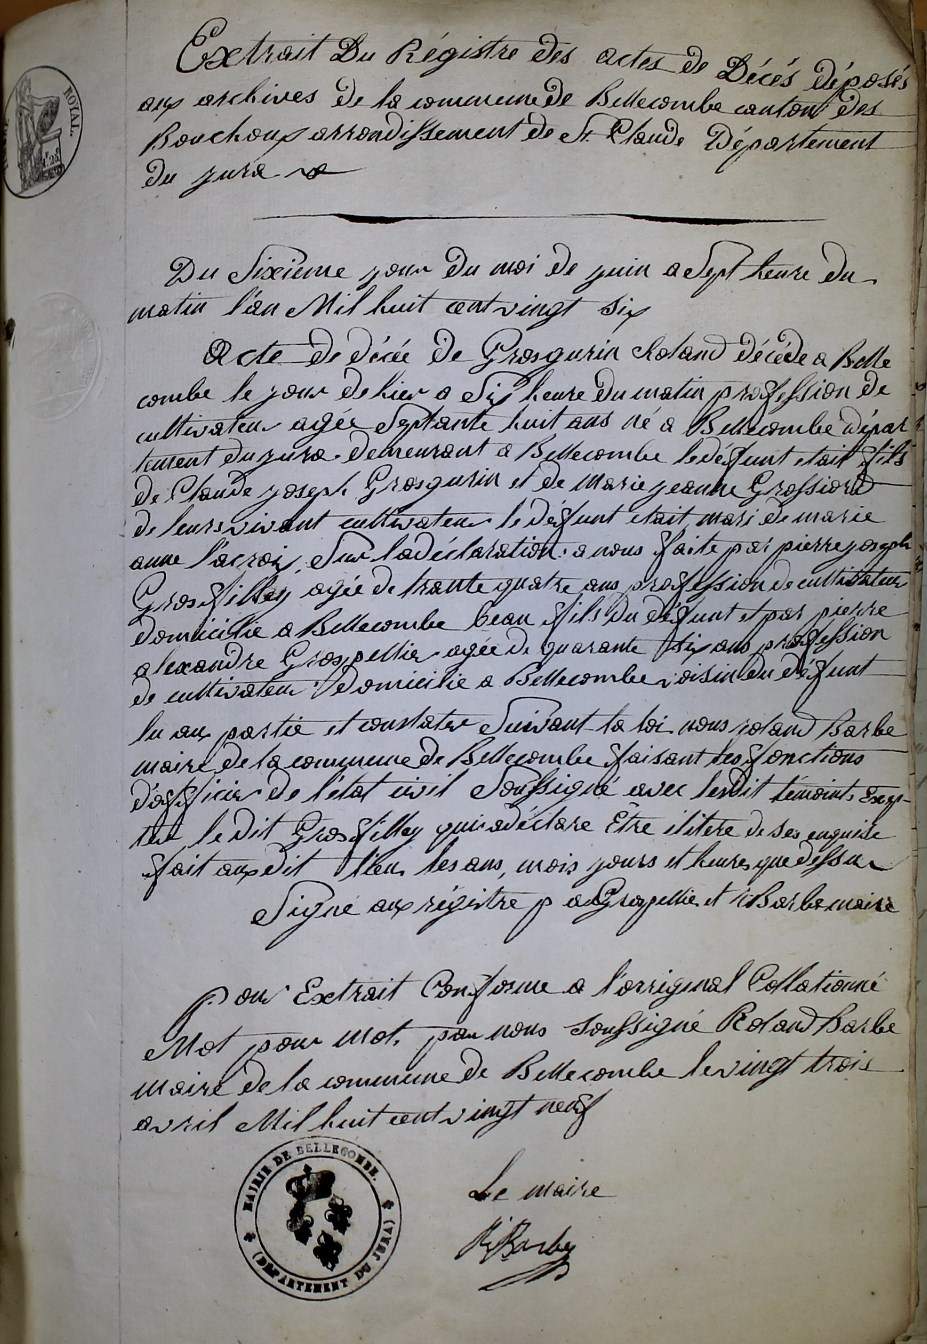 Extrait Du Régistre des actes de Décés déposés
aux archives de la commune de Bellecombe canton des
Bouchoux arrondissement de St Claude Département
du jura
Du Sixieme jour du moi de juin a Sept heure du
matin l'an Mil huit cent vingt six
Acte de décée de Grosgurin Roland décéde a Belle
combe le jour de hier a Six heure du matin profession de
cultivateur agée Septante huit ans né a Bellecombe dépar
tement du jura demeurant a Bellecombe le défunt etait fils
de Claude joseph Grosgurin et de marie jeanne Grossiord
de leurs vivant cultivateur le defunt etait mari de marie
anne lacroix Sur la déclaration a nous faite par pierre joseph
Grosfilley agée de trante quatre ans profession de cultivateur
domicilié a Bellecombe beau fils du défunt et par pierre
alexandre Grospellier agée de quarante six ans profession
de cultivateur domicilié a Bellecombe voisin du défunt
lu aux partie et constater Suivant la loi nous roland Barbe
maire de la commune de Bellecombe faisant les fonctions
d'officier de l'état civil Soussigné avec lesdit témoints Excep-
té le dit Grosfilley qui a déclare Être ilitere de ses enquise
fait aux dit lieu les ans, mois jours et heures que dessur
Signé aux régistre p a Grospellier et R Barbe maire
pour Extrait Conforme a l'orriginal Collationné
Mot pour mot, par nous Soussigné Roland Barbe
maire de la commune de Bellecombe le vingt trois
avril Mil huit cent vingt neuf
Le maire
R Barbe
MAIRIE DE BELLECOMBE.
(DÉPARTEMENT DU JURA)
ROYAL.